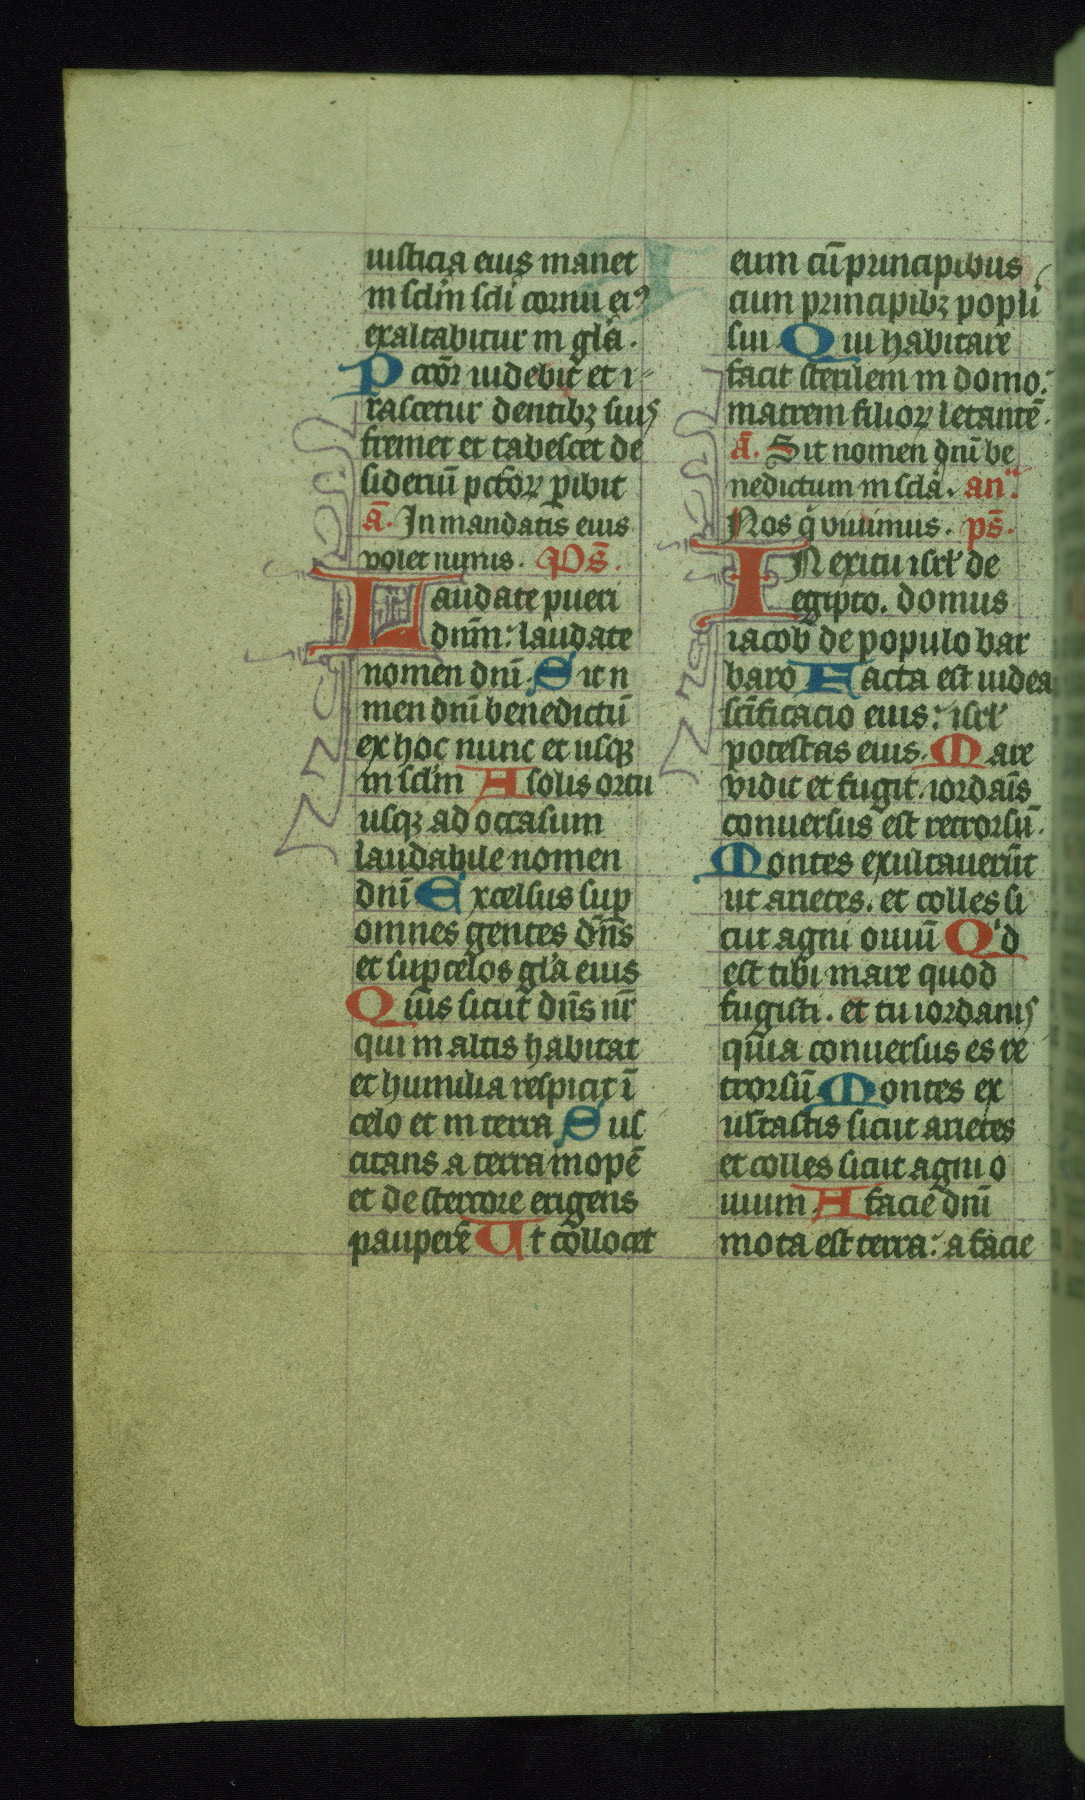 iusticia eius manet
in sclm̄ scli cornu ei⁹
exaltabitur in gl̄a.
Pctōr uidebit̄ et i
rascetur dentibꝫ suis
fremet et tabescet de
sideriū pctōꝝ ꝑibit
ā. In mandatis eius
volet nimis. Ps̄.
Laudate pueri
dnm̄: laudate
nomen dnī. Sit n
men dnī benedictū
ex hoc nunc et usqꝫ
in sclm̄ A solis ortu
usqꝫ ad occasum
laudabile nomen
dnī Excelsus suꝑ
omnes gentes dn̄s
et suꝑ celos gl̄a eius
Quis sicut dn̄s nr̄
qui in altis habitat
et humilia respicit ī
celo et in terra Sus
citans a terra inopē
et de stercore erigens
pauperē Ut collocet
eum cū principibus
cum principibꝫ popli
sui Qui habitare
facit sterilem in domo:
matrem filioꝝ letantē.
ā. Sit nomen dnī be
nedictum in scl̄a. an̄.
Nos q̇ viuimus. ps̄.
IN exitu isrl̄ de
egipto. domus
iacob de populo bar
baro Facta est iudea
scīficacio eius: isrl̄
potestas eius. Mare
vidit et fugit. iordaīs
conuersus est retrorsū.
Montes exultauerūt
ut arietes. et colles si
cut agni ouiū Qᵈd
est tibi mare quod
fugisti. et tu iordanis
quia conuersus es re
trorsū Montes ex
ultastis sicut arietes
et colles sicut agni o
uium. A facie dnī
mota est terra: a facie